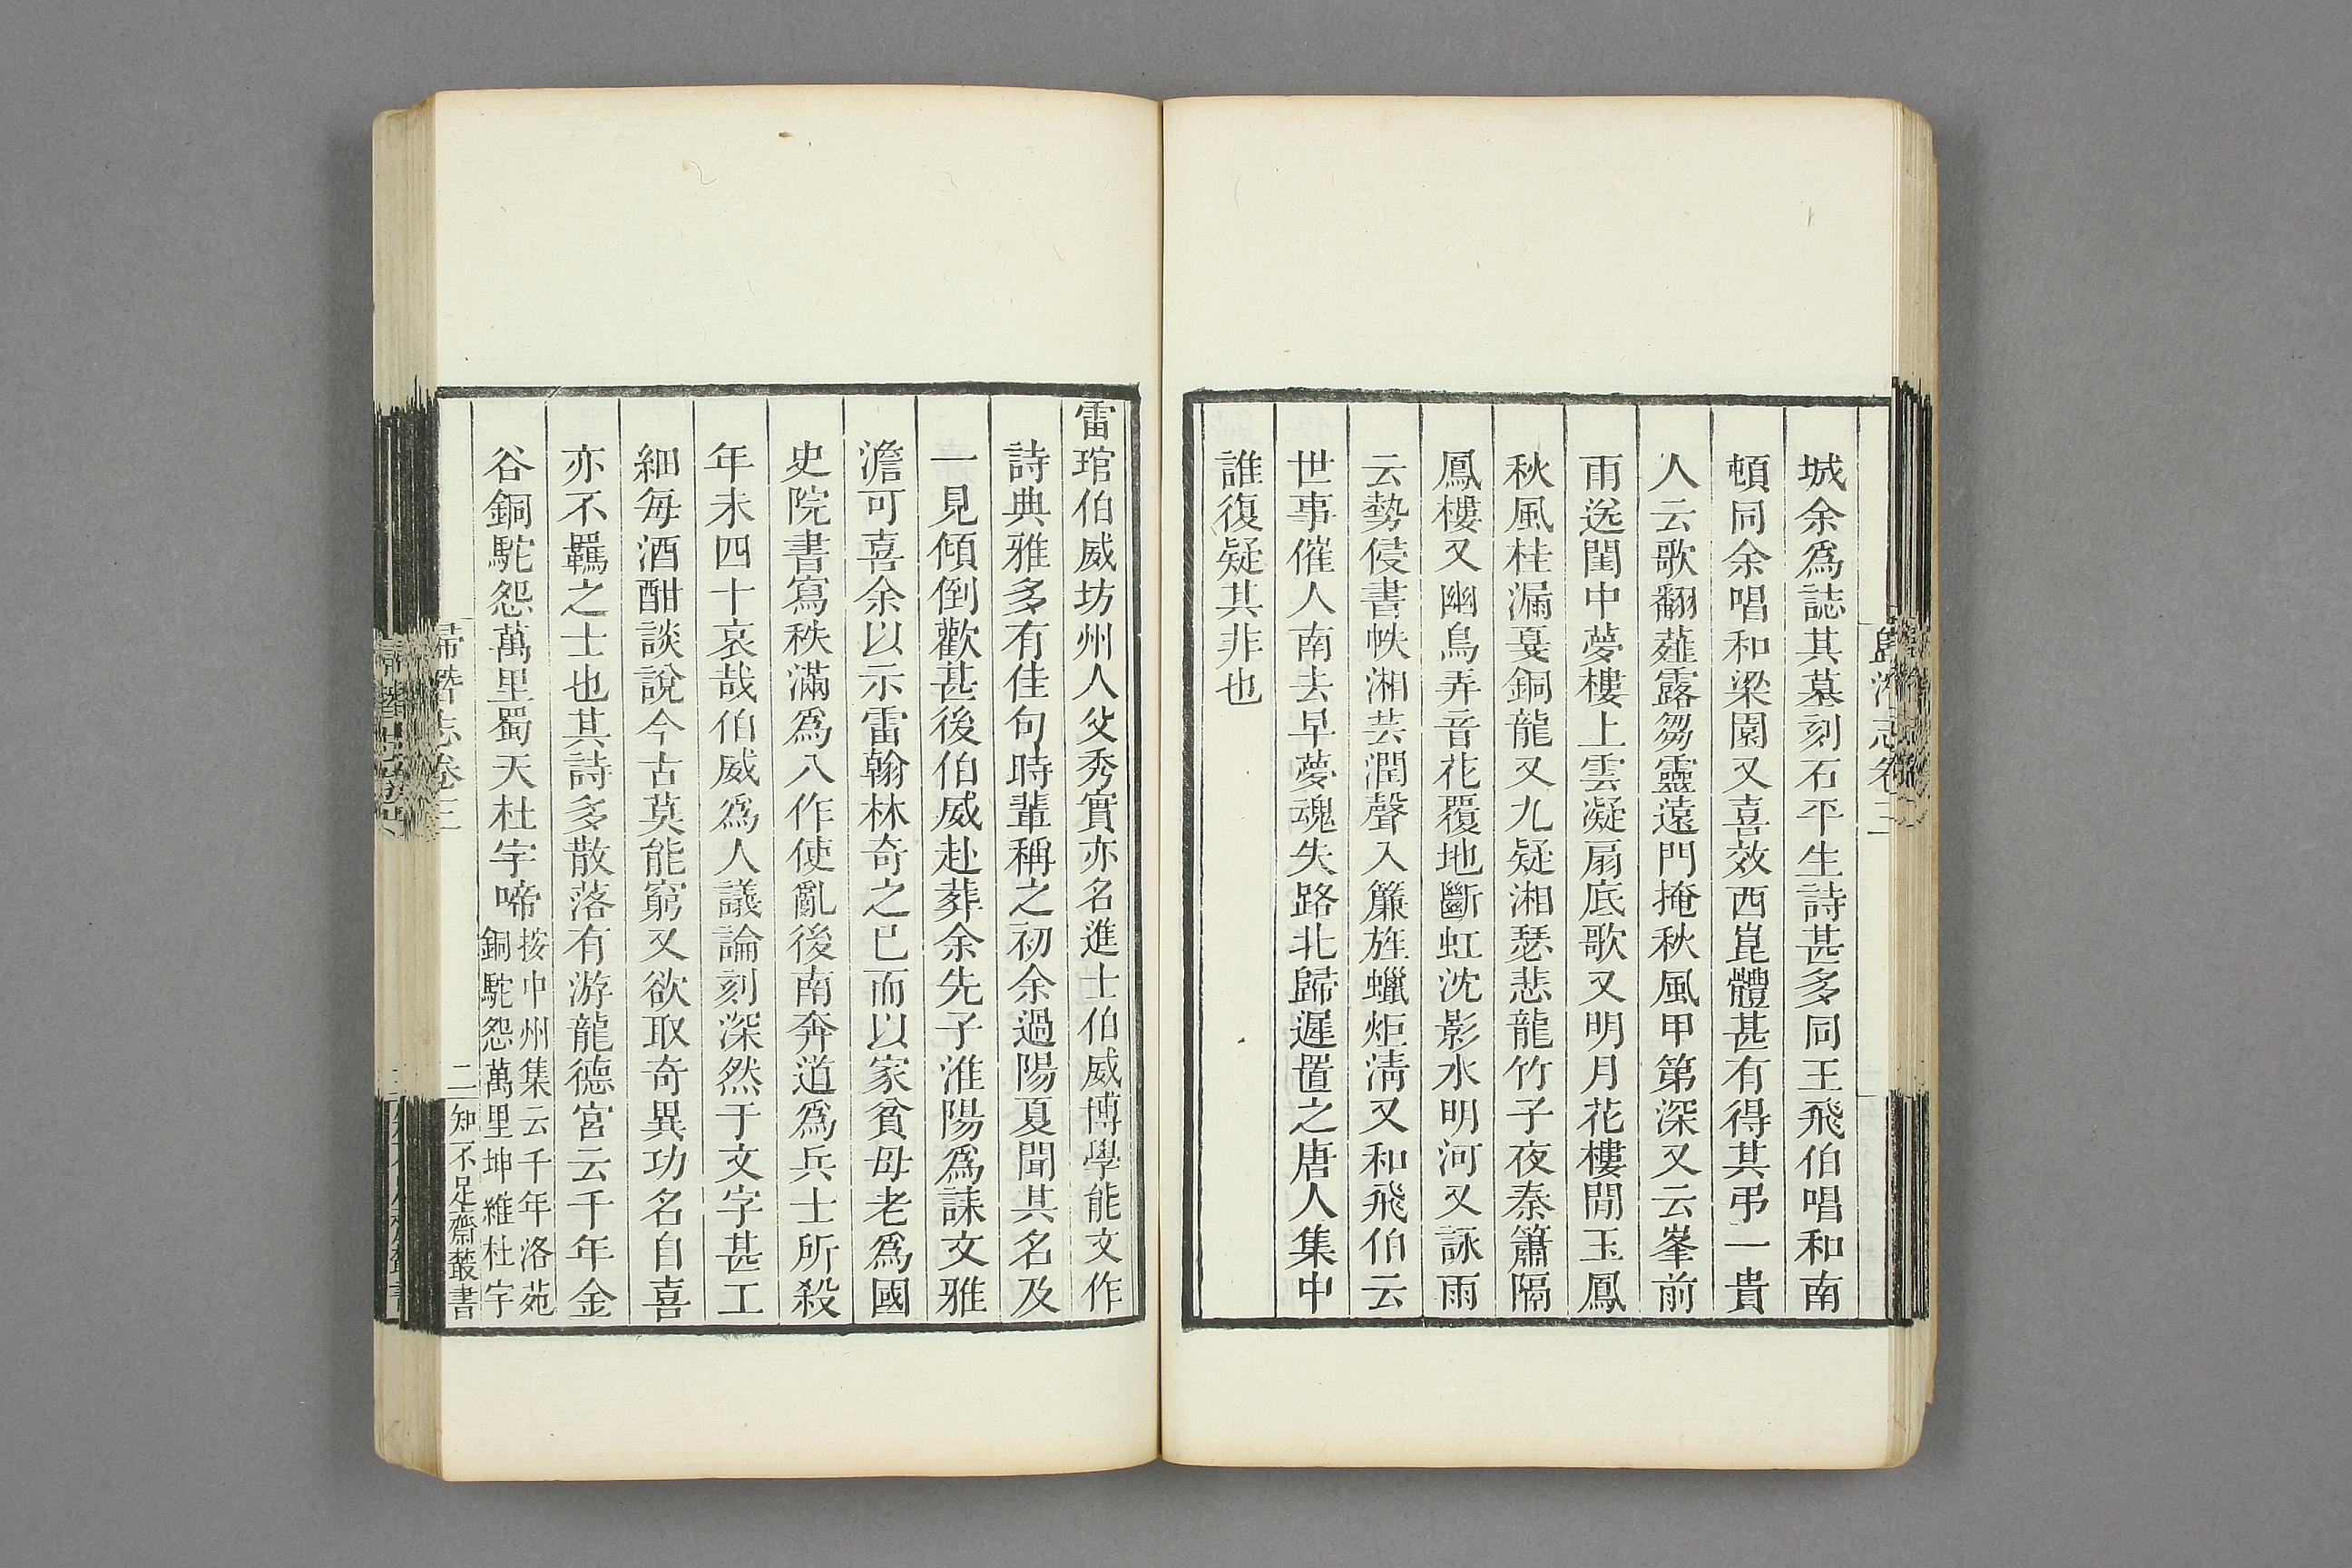 城余爲誌其墓刻石平生詩甚多同王飛伯唱和南
頓同余唱和梁園又喜效西崑體甚有得其弔一貴
人云歌翻薤露芻靈遠門掩秋風甲第深又云峯前
雨送閨中夢樓上雲凝扇底歌又明月花樓閒玉鳳
秋風桂漏戛銅龍又九疑湘瑟悲龍竹子夜秦簫隔
鳳樓又幽鳥弄音花覆地斷虹沈影水明河又詠雨
云勢侵書帙湘芸潤聲入簾旌蠟炬淸又和飛伯云
世事催人南去早夢魂失路北歸遲置之唐人集中
誰復疑其非也
雷琯伯威坊州人父秀實亦名進士伯威博學能文作
詩典雅多有佳句時輩稱之初余過陽夏聞其名及
一見傾倒歡甚後伯威赴葬余先子淮陽爲誄文雅
澹可喜余以示雷翰林奇之已而以家貧母老爲國
史院書寫秩滿爲八作使亂後南奔道爲兵士所殺
年未四十哀哉伯威爲人議論刻深然于文字甚工
細每酒酣談說今古莫能窮又欲取奇異功名自喜
亦不羈之士也其詩多散落有游龍德宮云千年金
谷銅駝怨萬里蜀天杜宇啼
按中州集云千年洛苑
銅駝怨萬里坤維杜宇
歸潛志卷三
二
知不足齋叢書